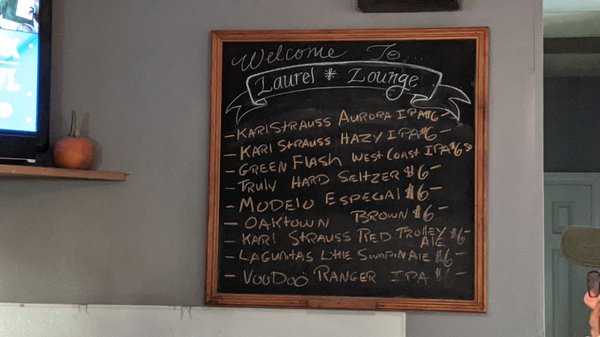 Welcome To...
Laurel * Lounge
- Karl Strauss Aurora IPA $6 -
- Karl Strauss Hazy IPA $6 -
- Green Flash West Coast IPA $6
- Truly Hard Seltzer $6 -
- Modelo Especial $6 -
- Oaktown Brown $6 -
- Karl Strauss Red Trolley Ale $6 -
- Lagunitas Little Sumpin Ale $6 -
- Voodoo Ranger IPA $6 -